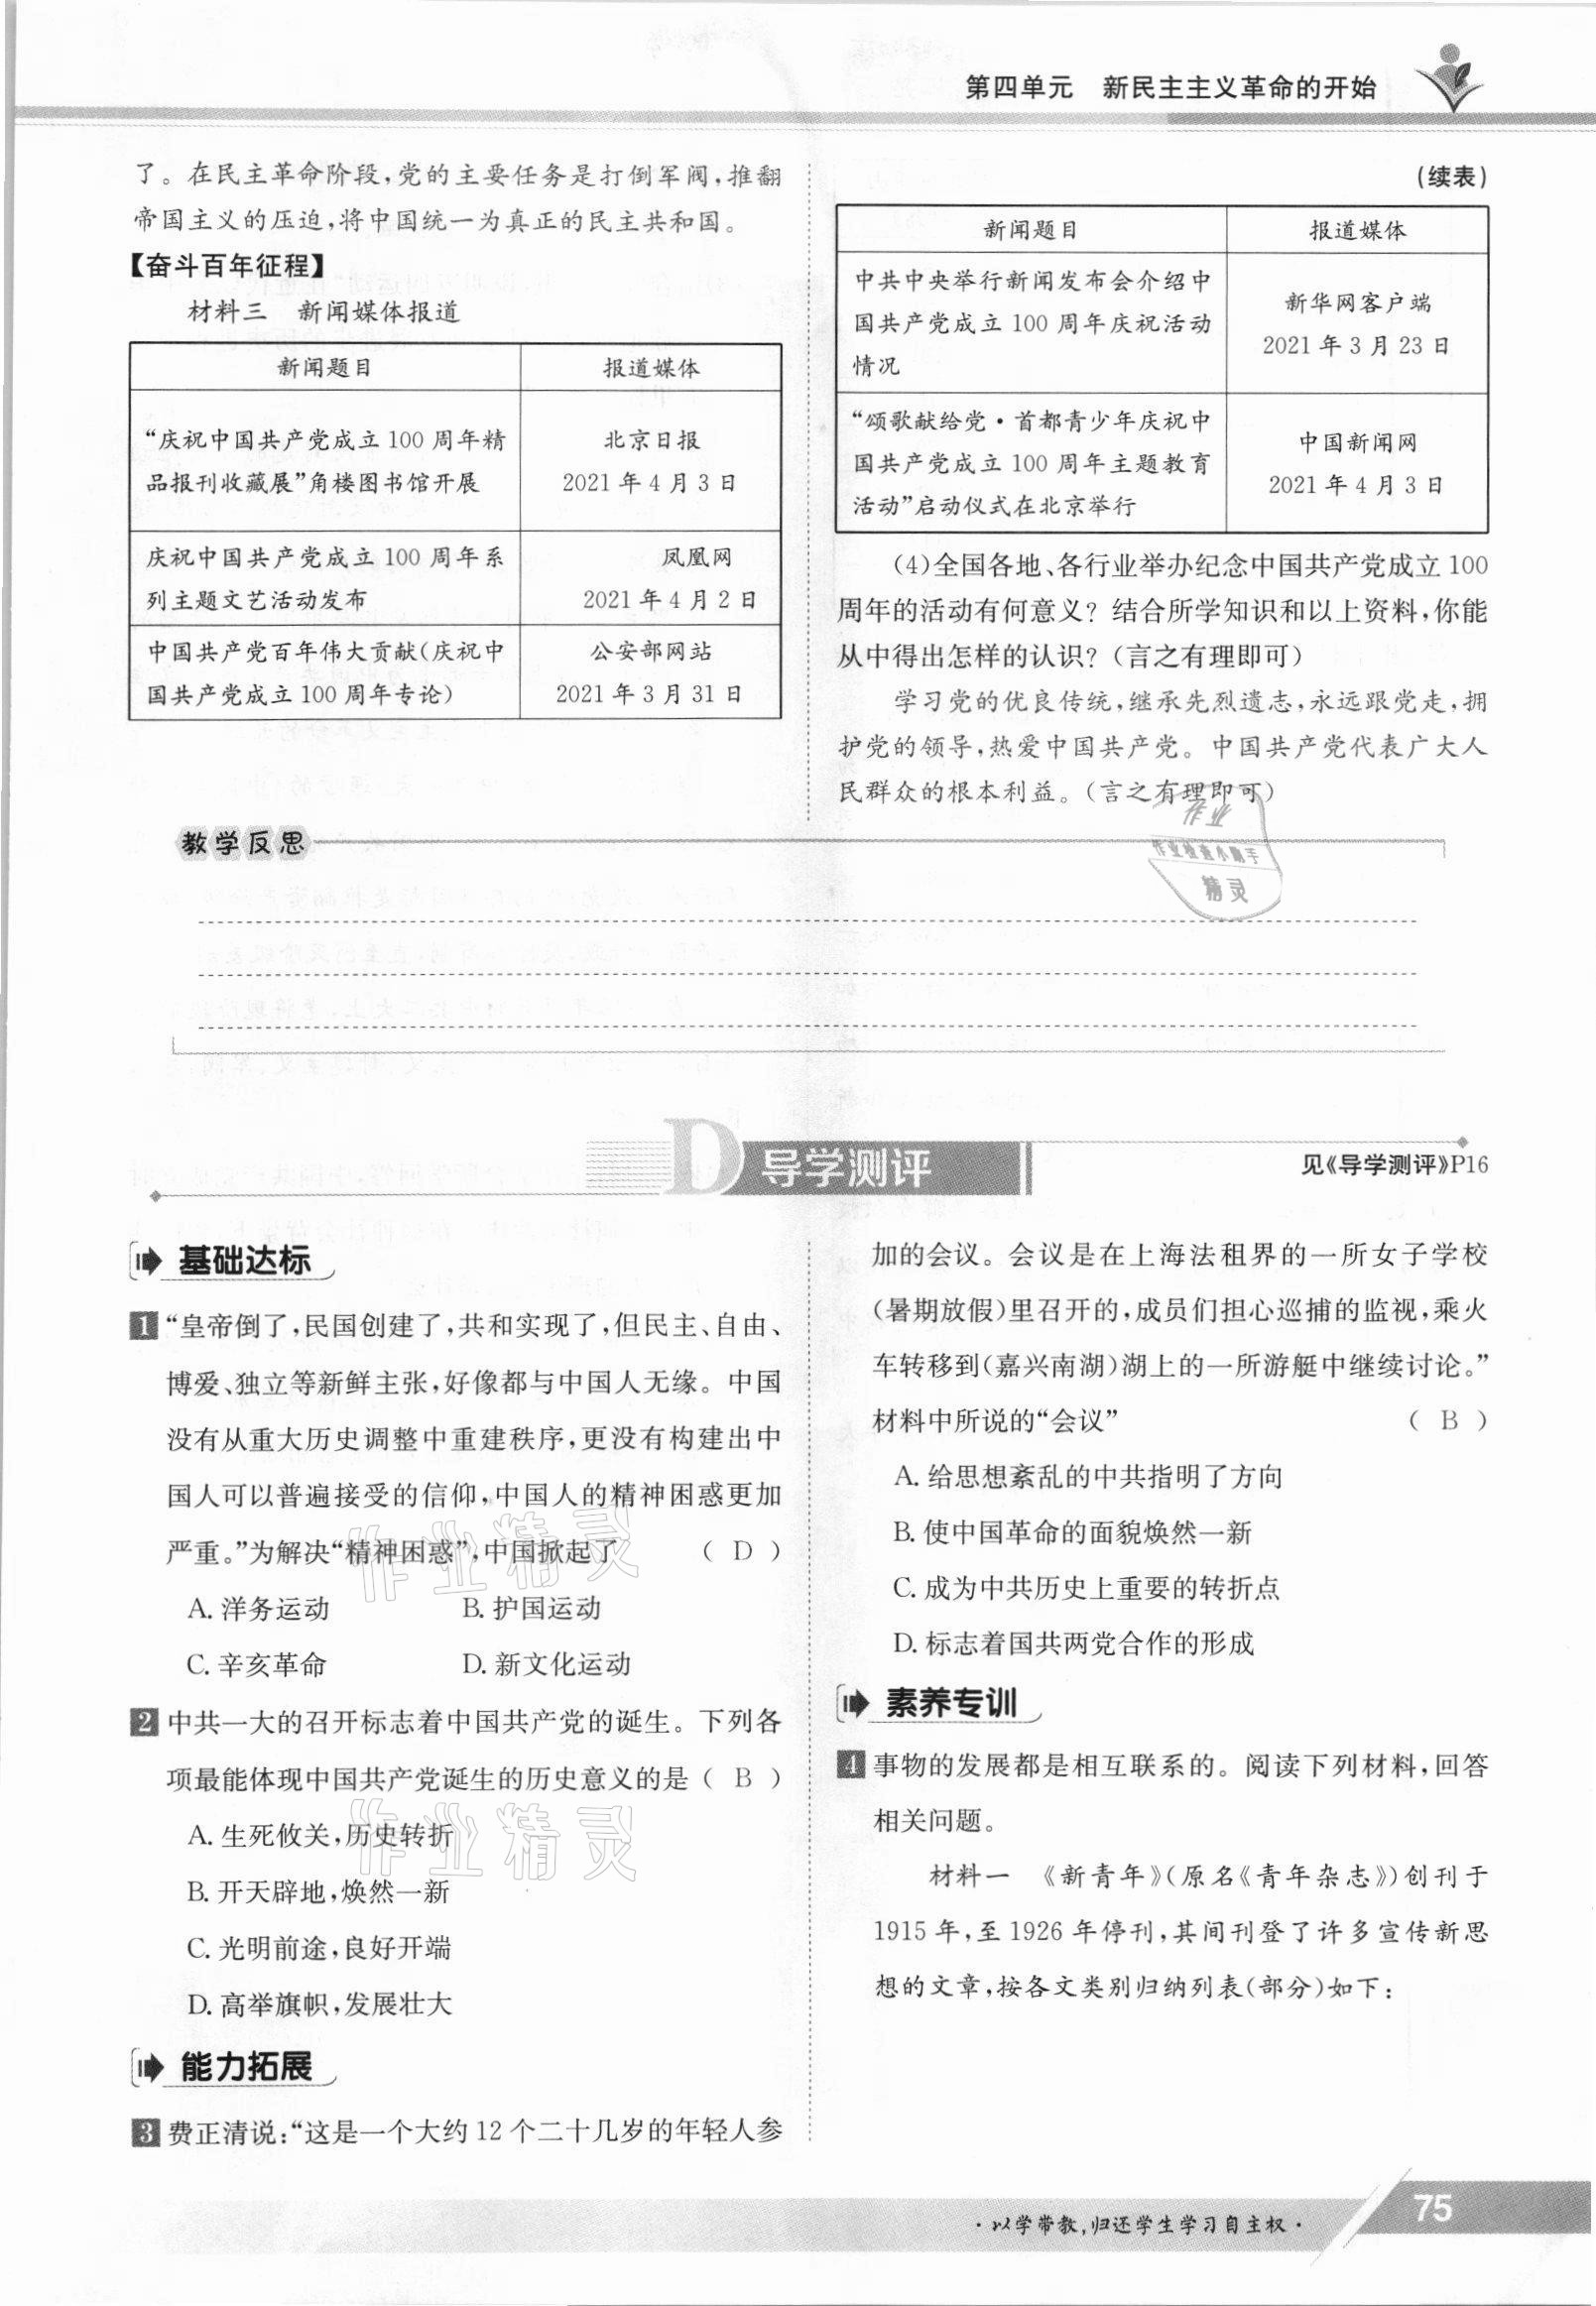 第四单元 新民主主义革命的开始
了。在民主革命阶段,党的主要任务是打倒军阀,推翻
帝国主义的压迫,将中国统一为真正的民主共和国。
【奋斗百年征程】
材料三 新闻媒体报道
新闻题目 报道媒体
“庆祝中国共产党成立 100 周年精
品报刊收藏展”角楼图书馆开展
北京日报
2021 年 4 月 3 日
庆祝中国共产党成立 100 周年系
列主题文艺活动发布
凤凰网
2021 年 4 月 2 日
中国共产党百年伟大贡献(庆祝中
国共产党成立 100 周年专论)
公安部网站
2021 年 3 月 31 日
(续表)
新闻题目 报道媒体
中共中央举行新闻发布会介绍中
国共产党成立 100 周年庆祝活动
情况
新华网客户端
2021 年 3 月 23 日
“颂歌献给党·首都青少年庆祝中
国共产党成立 100 周年主题教育
活动”启动仪式在北京举行
中国新闻网
2021 年 4 月 3 日
(4)全国各地、各行业举办纪念中国共产党成立 100
周年的活动有何意义? 结合所学知识和以上资料,你能
从中得出怎样的认识? (言之有理即可)
学习党的优良传统,继承先烈遗志,永远跟党走,拥
护党的领导,热爱中国共产党。中国共产党代表广大人
民群众的根本利益。(言之有理即可)
作业
作业检查小助手
精灵
教学反思
D 导学测评
见《导学测评》P16
基础达标
1 “皇帝倒了,民国创建了,共和实现了,但民主、自由、
博爱、独立等新鲜主张,好像都与中国人无缘。中国
没有从重大历史调整中重建秩序,更没有构建出中
国人可以普遍接受的信仰,中国人的精神困惑更加
严重。”为解决“精神困惑”,中国掀起了 ( D )
A. 洋务运动 B. 护国运动
C. 辛亥革命 D. 新文化运动
2 中共一大的召开标志着中国共产党的诞生。下列各
项最能体现中国共产党诞生的历史意义的是 ( B )
A. 生死攸关,历史转折
B. 开天辟地,焕然一新
C. 光明前途,良好开端
D. 高举旗帜,发展壮大
作业精灵
作业精灵
能力拓展
3 费正清说:“这是一个大约 12 个二十几岁的年轻人参
加的会议。会议是在上海法租界的一所女子学校
(暑期放假)里召开的,成员们担心巡捕的监视,乘火
车转移到(嘉兴南湖)湖上的一所游艇中继续讨论。”
材料中所说的“会议” ( B )
A. 给思想紊乱的中共指明了方向
B. 使中国革命的面貌焕然一新
C. 成为中共历史上重要的转折点
D. 标志着国共两党合作的形成
素养专训
4 事物的发展都是相互联系的。阅读下列材料,回答
相关问题。
材料一 《新青年》(原名《青年杂志》)创刊于
1915 年,至 1926 年停刊,其间刊登了许多宣传新思
想的文章,按各文类别归纳列表(部分)如下:
·以学带教,归还学生学习自主权·
75